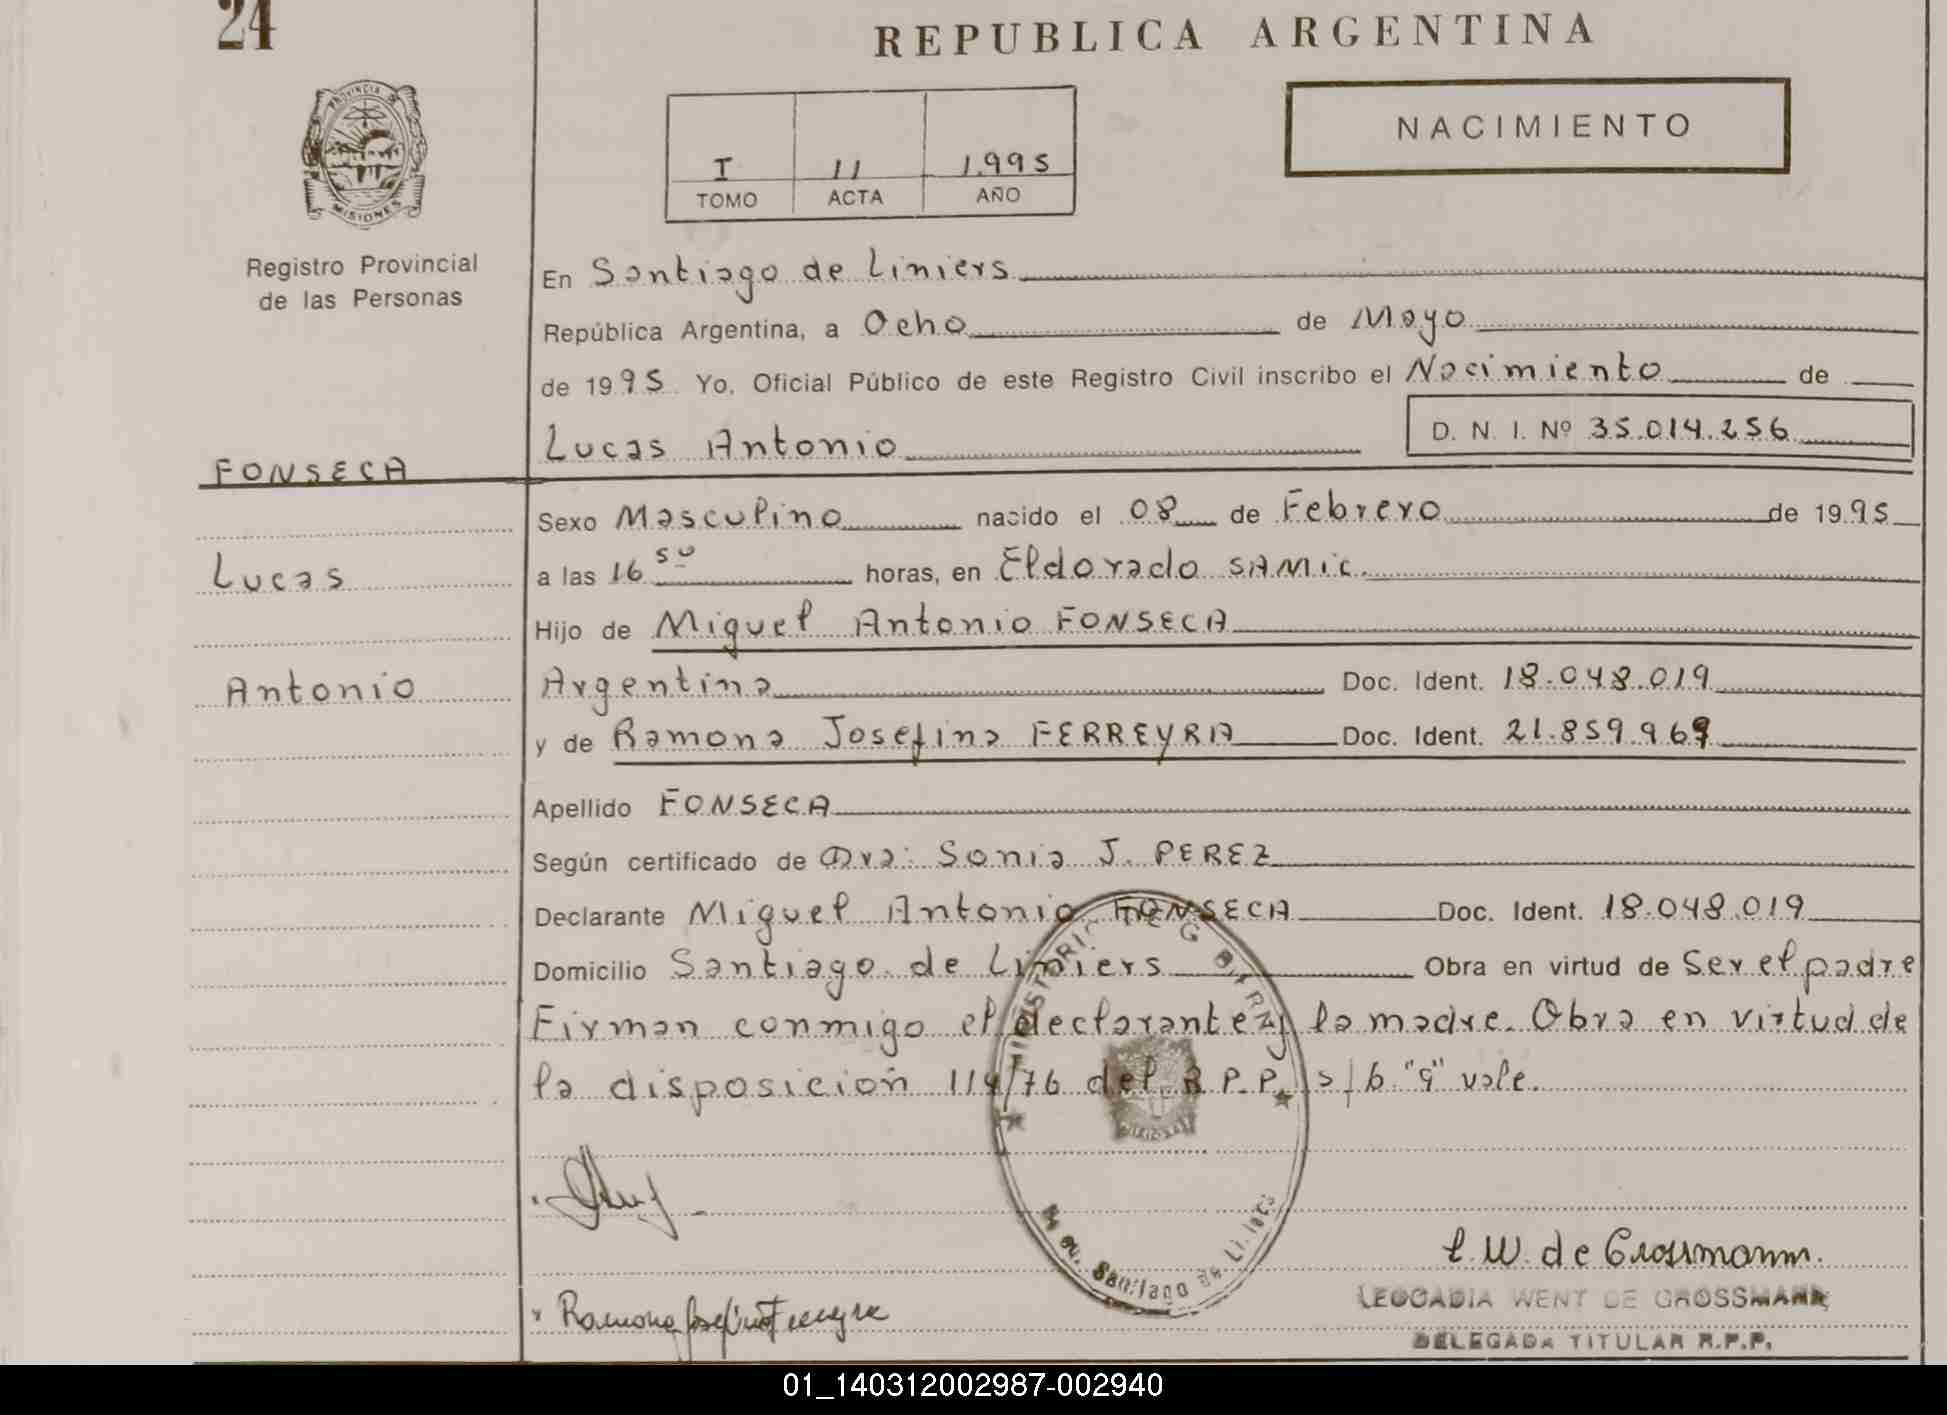 24
REPUBLICA ARGENTINA
PROVINCIA DE
MISIONES
Registro Provincial
de las Personas
I 11 1.995
TOMO ACTA AÑO
NACIMIENTO
En Santiago de Liniers
República Argentina, a Ocho de Mayo
de 1995 Yo, Oficial Público de este Registro Civil inscribo el Nacimiento de
Lucas Antonio D. N. I. Nº 35.014.256
FONSECA
Sexo Masculino nacido el 08 de Febrero de 1995
Lucas
a las 16 50 horas, en Eldorado SAMIC.
Hijo de Miguel Antonio FONSECA
Antonio
Argentina Doc. Ident. 18.048.019
y de Ramona Josefina FERREYRA Doc. Ident. 21.859.969
Apellido FONSECA
Según certificado de Dra: Sonia J. PEREZ
Declarante Miguel Antonio FONSECA Doc. Ident. 18.048.019
Domicilio Santiago de Liniers Obra en virtud de Ser el padre
Firman conmigo el declarante y la madre. Obra en virtud de
la disposición 114/76 del R.P.P. s/b "9" vale.
Santiago de Liniers
L. W. de Grossmann.
LEOCADIA WENT DE GROSSMANN
DELEGADA TITULAR R.P.P.
Ramona Josefina Ferreyra
01_140312002987-002940